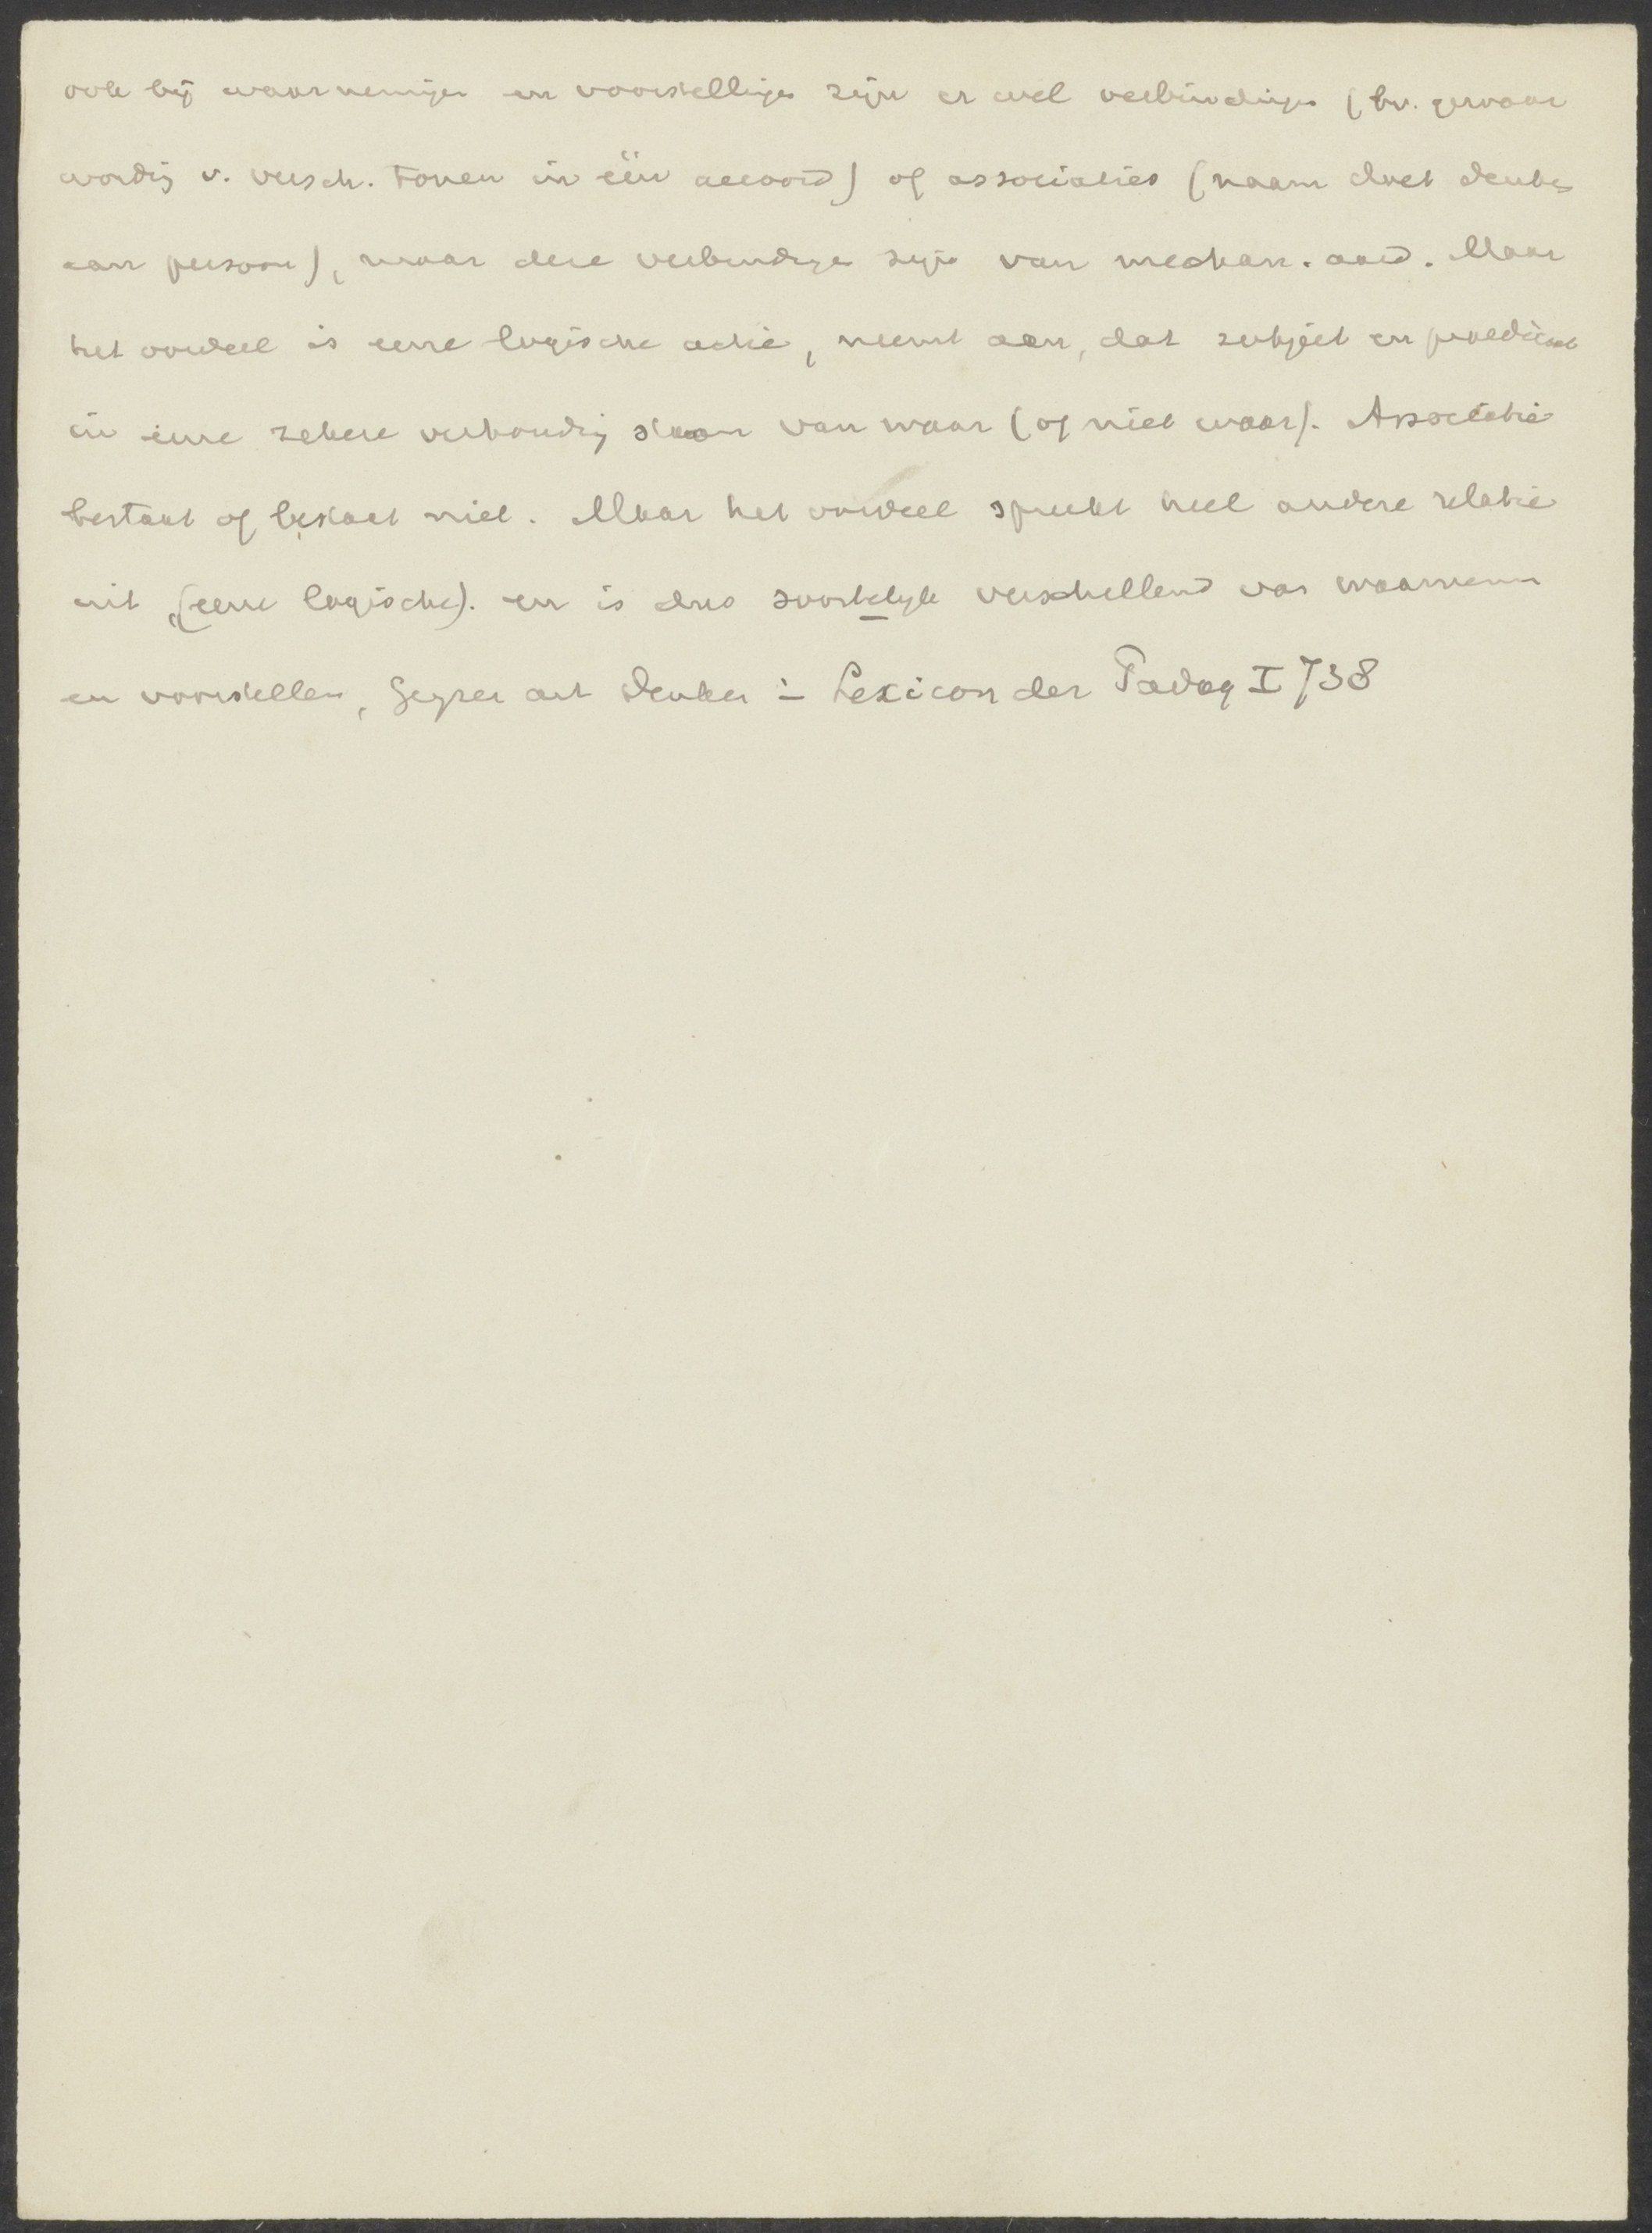 ook bij waarnemingen en voorstellingen zijn er wel verbindingen (bv. gewaar
wording v. versch. tonen in één accoord) of associaties (naam doet denken
aan persoon), maar deze verbindingen zijn van mechan. aard. Maar
het oordeel is eene logische actie, neemt aan, dat subject en praedicaat
in eene zekere verhouding staan van waar (of niet waar). Associatie
bestaat of bestaat niet. Maar het oordeel spreekt heel andere relatie
uit, (eene logische). en is dus soortelijk verschillend van waarnemen
en voorstellen, Geyser art Denken in Lexicon der Padag I 738